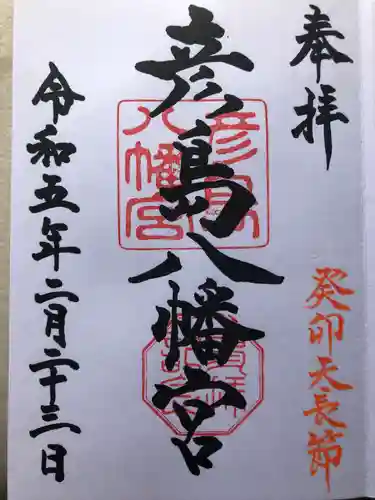 奉拝
癸卯天長節
彦島八幡宮
彦島
八幡宮
令和五年二月二十三日